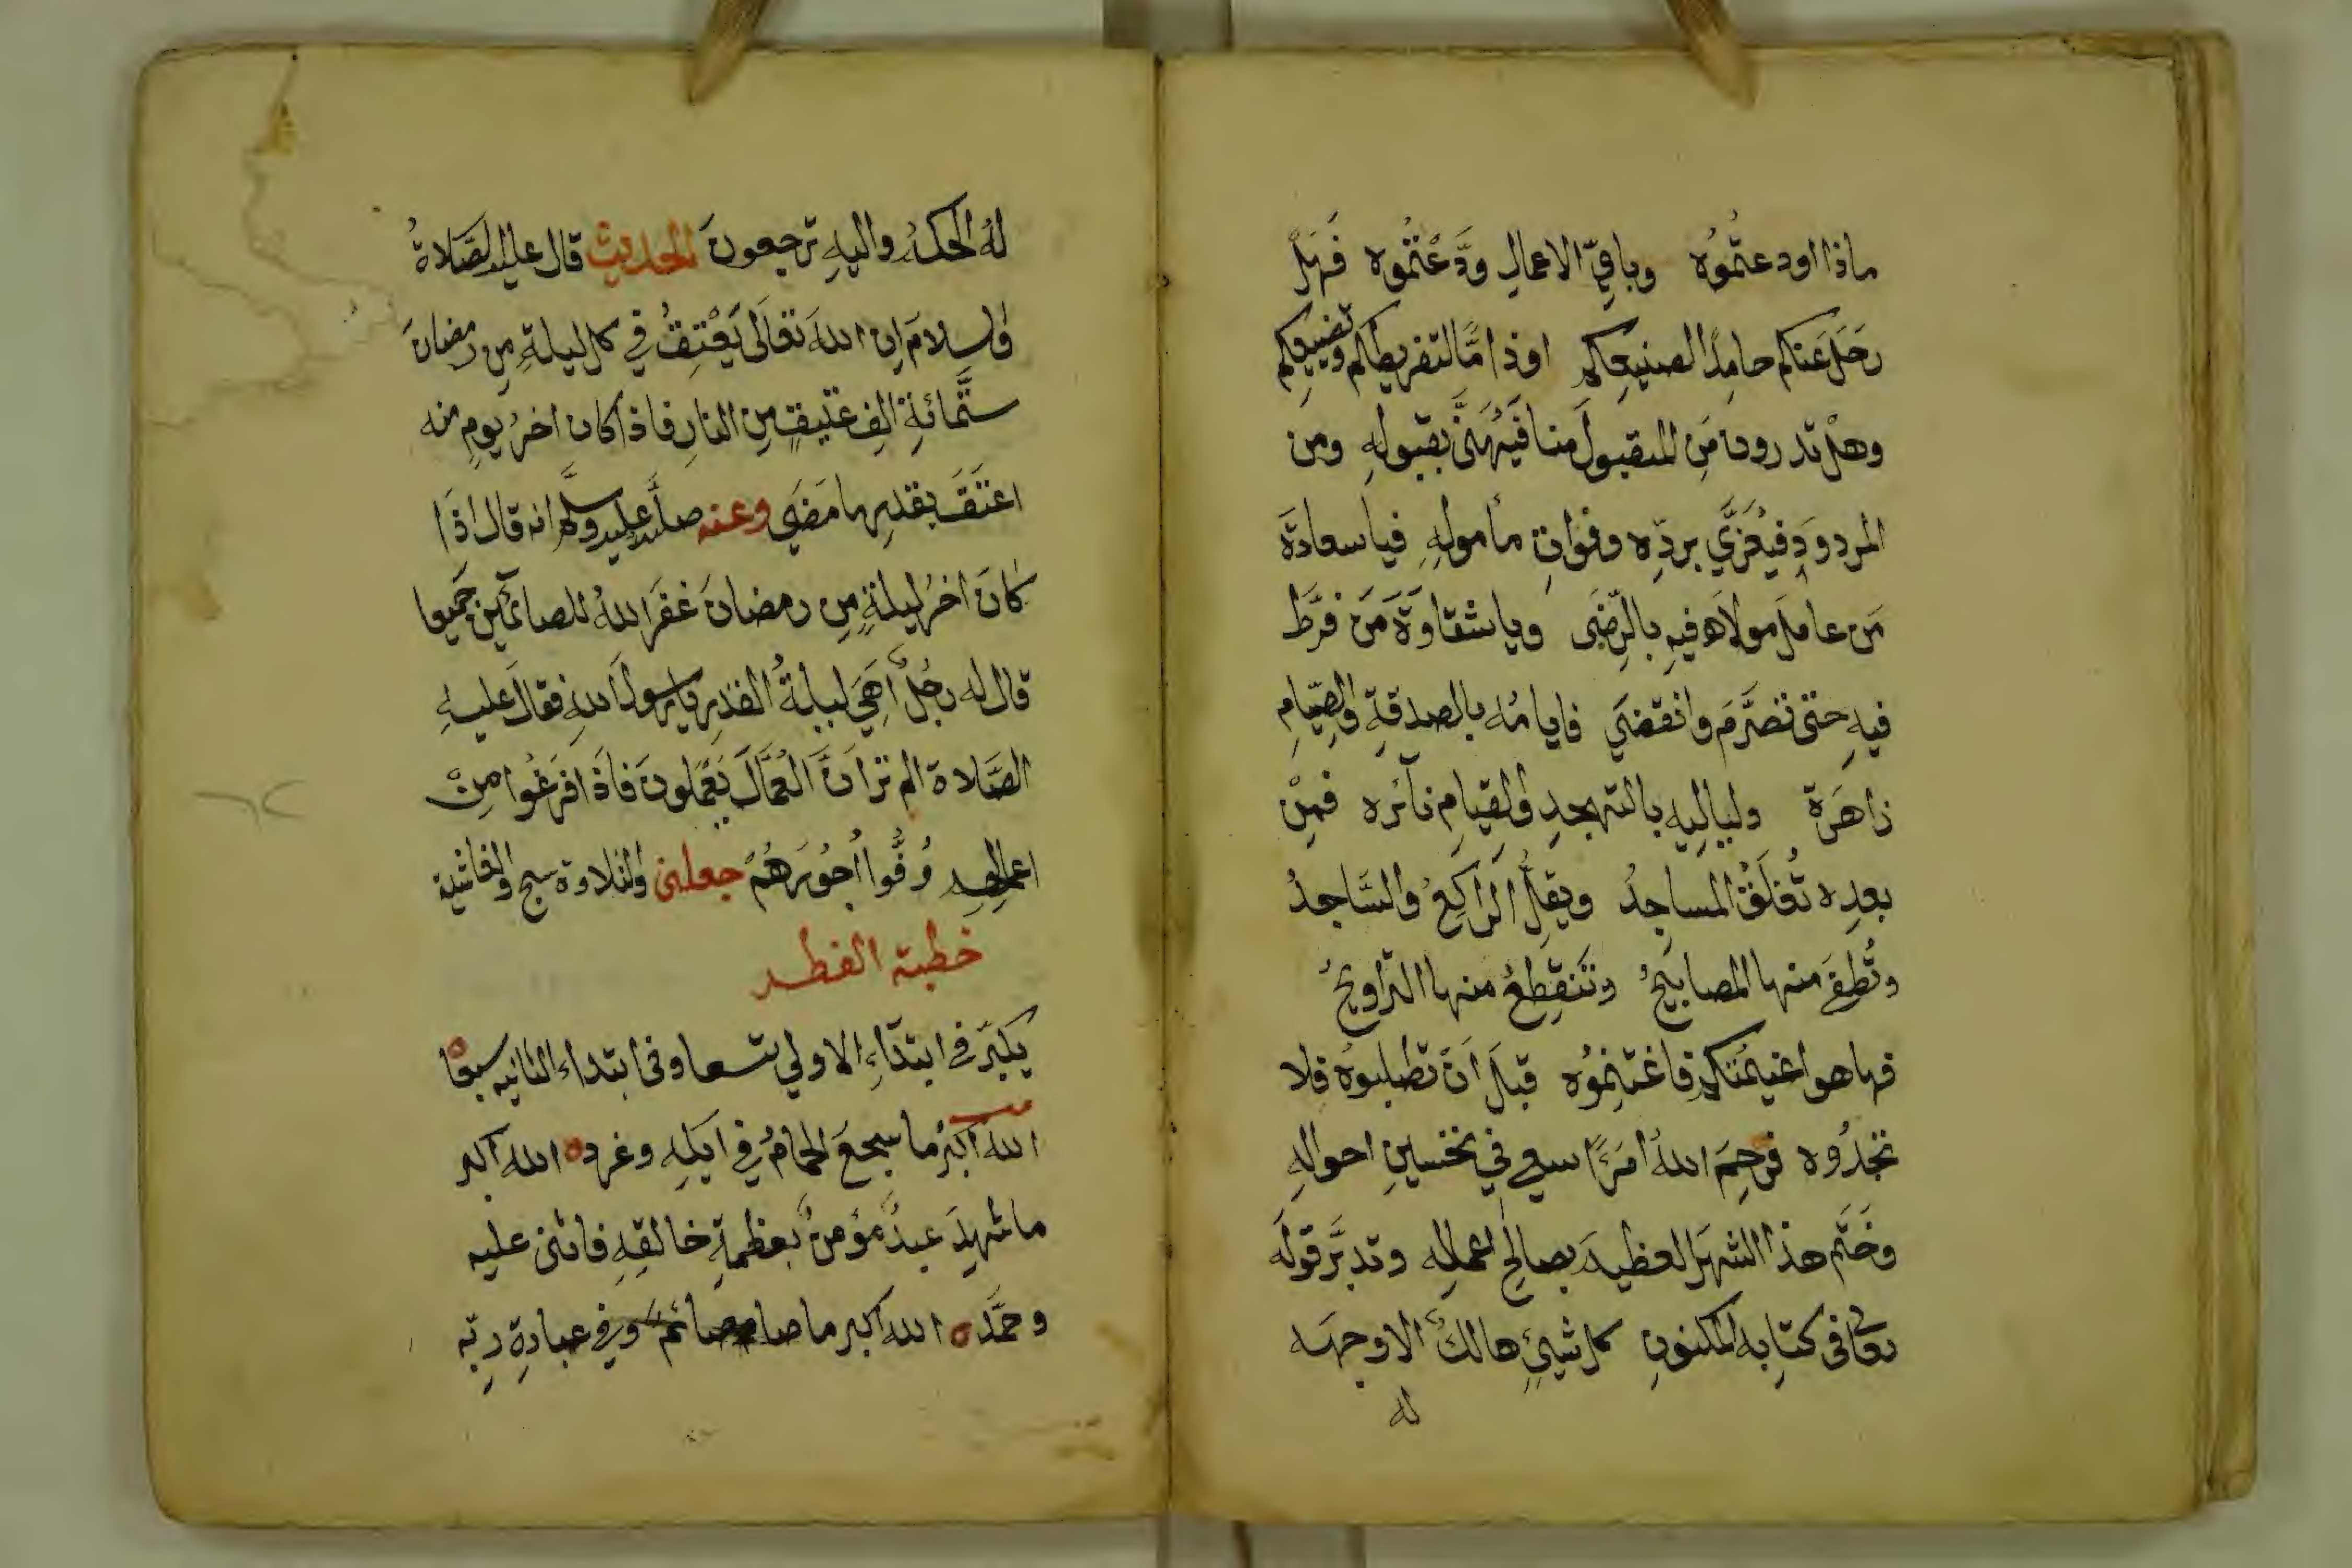 ماذا اودعتُموُه وباقِيَ الاعمالِ ودَّعْتُموُه فَهَلْ
رَحَلَ عَنكم حامِدًا لصنيعِكم اوذامًّا لتفريطِكم وتضييعِكم
وهلْ تدرون مَنِ المقبولُ منا فَيُهَنَّى بقبولِهِ ومن
المردودِ فيُعَزَّي بردِّه وفواتِ مأمولِهِ فياسعادَةَ
مَن عاملَ مولاَه فيهِ بالرِّضَى وياشقاوَةَ مَنَ فرَّط
فيهِ حتى تصَرَّمَ وانقضَي فايامُه بالصدقةِ والصِّيَامِ
زاهَرة ولياليِه بالتهجدِ والقِيامِ نآئره فمِنْ
بعدِه تُغلَقُ المساجِدُ ويقلُّ الراكِعُ والسَّاجدُ
وتُطفَى منها المصابيحُ وتَنقطِعُ منها التراويحُ
فها هوا غنيمتُكم فاغتنِموُه قبلَ اَنَ تطلبوُه فلا
تجدُوه فرحِمَ اللهُ امرًَا سعي في تحسينِ احوالِهِ
وخَتَم هذا الشهرَ العظيمَ بصالِحِ اعمالِه وتدبَّرَ قولَه
تعالى في كتابِه المكنونِ كل شيئٍ هالكٌ الا وجهه
له
لهُ الحكمُ واليهِ ترجعونَ الحديث قال عليه الصَّلاةُ
والسلامَ اِن اللهَ تعَالَى يَعْتِقُ في كل ليلةٍ مِن رمضانَ
ستَّمائةِ الفِ عتيقٍ مِن النارِ فاذا كان اخرُ يومٍ منه
اعتَقَ بقدرِ ما مَضَي وعنه صلَّى الله عليه وسلَّم انه قال اذَا
كانَ اخرُ ليلةٍ مِن رمضانَ غفَرَ اللهُ للصائمِين جَميعا
قال له رجُلٌ اَهِيَ ليلةُ القدرِ يارسولَ اللهِ فقالَ عليهِ
الصَّلاة الم ترَ انَّ العُمَّالَ يَعْمَلونَ فاذَا فرَغُوا مِنْ
اعمالِهم وُفُّوا اُجُورَهُمْ جعلني والتلاوة سبح والغاشية
خطبة الفطر
يكبّر في ابتدَآءِ الاولي تسعا وفى ابتداء الثانيه سبعا
الله اكبرُ ما سجعَ الحمامُ في ايكِه وغرد الله اكبر
ما شهِدَ عبدٌ مؤمنٌ بعظمةِ خالقِهِ فاثنى عليه
وحمَّد الله اكبر ما صام صائمٌ ورغ في عبادةِ ربِّه